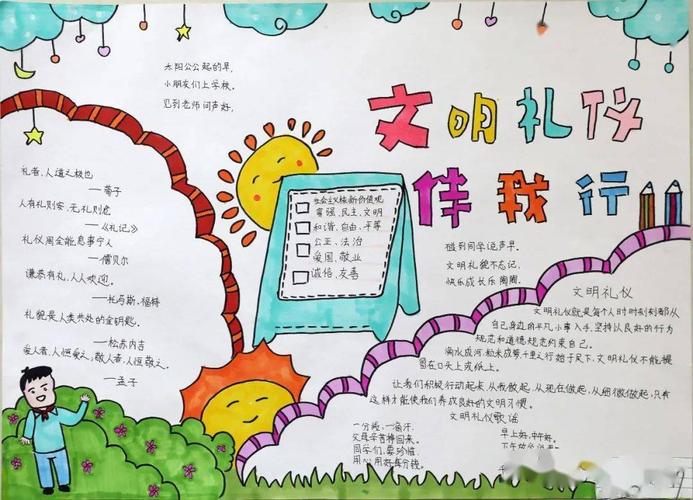 文明礼仪
伴我行
太阳公公起的早,
小朋友们上学校。
见到老师问声好,
碰到同学说声早。
文明礼貌不忘记,
快乐成长乐陶陶。
礼者,人道之极也
——荀子
人有礼则安,无礼则危
——《礼记》
礼仪周全能息事宁人
——儒贝尔
谦恭有礼,人人欢迎。
——托马斯·福特
礼貌是人类共处的金钥匙。
——松苏内吉
爱人者,人恒爱之,敬人者,人恒敬之。
——孟子
社会主义核心价值观
富强、民主、文明
和谐、自由、平等
公正、法治
爱国、敬业
诚信、友善
文明礼仪
文明礼仪就是每个人时时刻刻都从
自己身边的平凡小事入手,坚持以良好的行为
规范和道德规范约束自己。
滴水成河,粒米成箩,千里之行始于足下,文明礼仪不能
留在口头上或纸上。
让我们积极行动起来,从我做起,从现在做起,从细微做起,只有
这样才能使我们养成良好的文明习惯。
文明礼仪歌谣
一分钱,一滴汗,
父母辛苦挣回来。
同学们,要珍惜,
用心用好每分钱。
早上好,中午好,